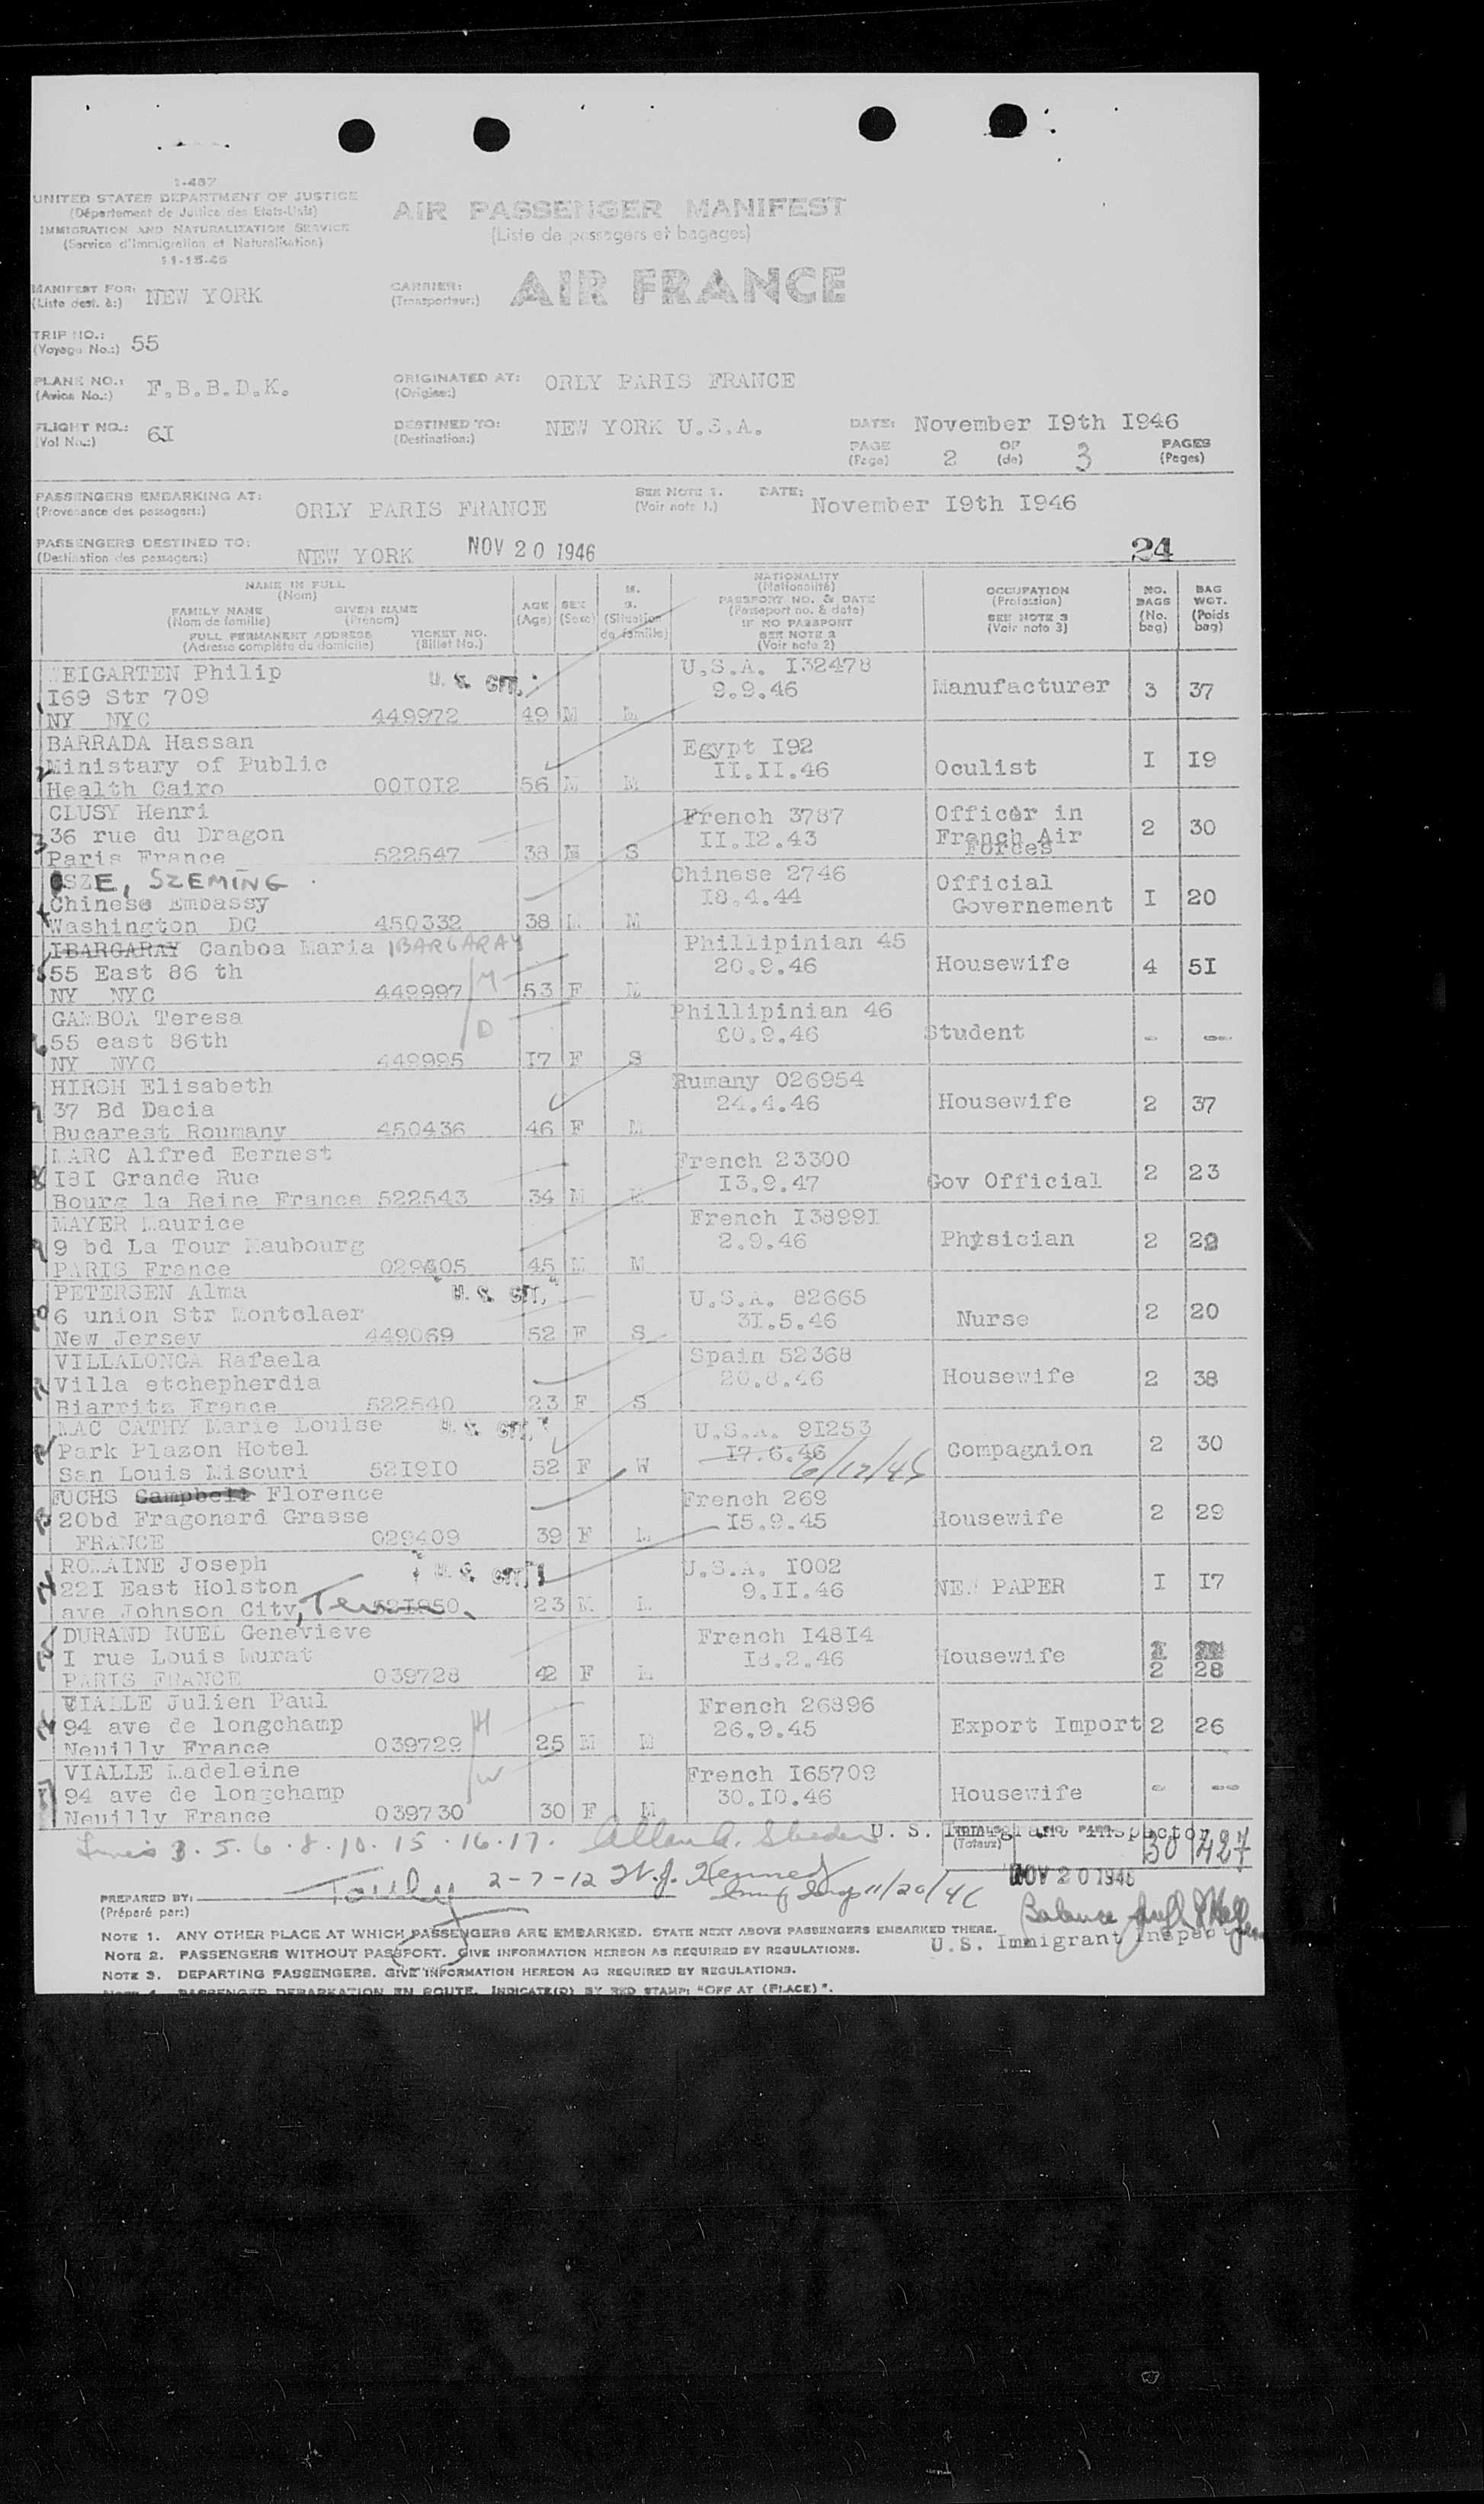 1-457
UNITED STATES DEPARTMENT OF JUSTICE
(Département de Justice des Etats-Unis)
IMMIGRATION AND NATURALIZATION SERVICE
(Service d'immigration et Naturalisation)
11-15-45
AIR PASSENGER MANIFEST
(Liste de passagers et bagages)
MANIFEST FOR: NEW YORK
(Liste dest. à:)
CARRIER: AIR FRANCE
(Transporteur:)
TRIP NO.: 55
(Voyage No.:)
PLANE NO.: F.B.B.D.K.
(Avion No.:)
ORIGINATED AT: ORLY PARIS FRANCE
(Origine:)
FLIGHT NO.: 6I
(Vol No.:)
DESTINED TO: NEW YORK U.S.A.
(Destination:)
DATE: November I9th I946
PAGE 2 OF 3 PAGES
(Page) (de) (Pages)
PASSENGERS EMBARKING AT: ORLY PARIS FRANCE
(Provenance des passagers:)
SEE NOTE 1. DATE: November I9th I946
(Voir note 1.)
PASSENGERS DESTINED TO: NEW YORK NOV 20 1946 24
(Destination des passagers:)
NAME IN FULL
(Nom)
FAMILY NAME GIVEN NAME
(Nom de famille) (Prenom)
FULL PERMANENT ADDRESS TICKET NO.
(Adresse complète du domicile) (Billet No.)
AGE
(Age)
SEX
(Sexe)
M.
S.
(Situation
de famille)
NATIONALITY
(Nationalité)
PASSPORT NO. & DATE
(Passeport no. & date)
IF NO PASSPORT
SEE NOTE 2
(Voir note 2)
OCCUPATION
(Profession)
SEE NOTE 3
(Voir note 3)
NO.
BAGS
(No.
bag)
BAG
WGT.
(Poids
bag)
1 EIGARTEN Philip U.S. CIT. U.S.A. I32478
I69 Str 709 9.9.46 Manufacturer 3 37
NY NYC 449972 49 M M
2 BARRADA Hassan Egypt I92
Ministary of Public II.II.46 Oculist I I9
Health Cairo 00I0I2 56 M M
3 CLUSY Henri French 3787 Officer in
36 rue du Dragon II.I2.43 French Air 2 30
Paris France 522547 38 M S Forces
4 SZE, SZEMING Chinese 2746 Official
Chinese Embassy I8.4.44 Governement I 20
Washington DC 450332 38 M M
5 IBARGARAY Canboa Maria IBARGARAY Phillipinian 45
55 East 86 th 20.9.46 Housewife 4 5I
NY NYC 449997 M 53 F M
6 GAMBOA Teresa D Phillipinian 46
55 east 86th 20.9.46 Student - --
NY NYC 449995 I7 F S
7 HIRSH Elisabeth Rumany 026954
37 Bd Dacia 24.4.46 Housewife 2 37
Bucarest Roumany 450436 46 F M
8 MARC Alfred Eernest French 23300
I8I Grande Rue I3.9.47 Gov Official 2 23
Bourg la Reine France 522543 34 M M
9 MAYER Maurice French I3899I
9 bd La Tour Maubourg 2.9.46 Physician 2 29
PARIS France 029405 45 M M
10 PETERSEN Alma U.S. CIT. U.S.A. 82665
6 union Str Montclaer 3I.5.46 Nurse 2 20
New Jersey 449069 52 F S
11 VILLALONGA Rafaela Spain 52368
Villa etchepherdia 20.8.46 Housewife 2 38
Biarritz France 522540 23 F S
12 MAC CATHY Marie Louise U.S. CIT. U.S.A. 9I253
Park Plazon Hotel I7.6.46 Compagnion 2 30
San Louis Misouri 52I9I0 52 F W 6/17/46
13 FUCHS Campbell Florence French 269
20bd Fragonard Grasse I5.9.45 Housewife 2 29
FRANCE 029409 39 F M
14 ROMAINE Joseph U.S. CIT. U.S.A. I002
22I East Holston 9.II.46 NEW PAPER I I7
ave Johnson City, Tenn. 23 M M
15 DURAND RUEL Genevieve French I48I4
I rue Louis Murat I8.2.46 Housewife
PARIS FRANCE 039728 42 F M 2 28
16 VIALLE Julien Paul French 26896
94 ave de longchamp H 26.9.45 Export Import 2 26
Neuilly France 039729 25 M M
17 VIALLE Madeleine W French I65709
94 ave de longchamp 30.I0.46 Housewife - --
Neuilly France 039730 30 F M
Lines 3. 5. 6. 8. 10. 15. 16. 17. U. S. Immigrant Inspector
TOTALS
(Totaux) 30 427
2-7-12 W. J. Kennedy
11/20/46 NOV 20 1946
PREPARED BY:
(Préparé par:)
Balance
U.S. Immigrant Inspector
NOTE 1. ANY OTHER PLACE AT WHICH PASSENGERS ARE EMBARKED. STATE NEXT ABOVE PASSENGERS EMBARKED THERE.
NOTE 2. PASSENGERS WITHOUT PASSPORT. GIVE INFORMATION HEREON AS REQUIRED BY REGULATIONS.
NOTE 3. DEPARTING PASSENGERS. GIVE INFORMATION HEREON AS REQUIRED BY REGULATIONS.
NOTE 4. PASSENGER DEBARKATION EN ROUTE. INDICATE(D) BY RED STAMP: "OFF AT (PLACE)".